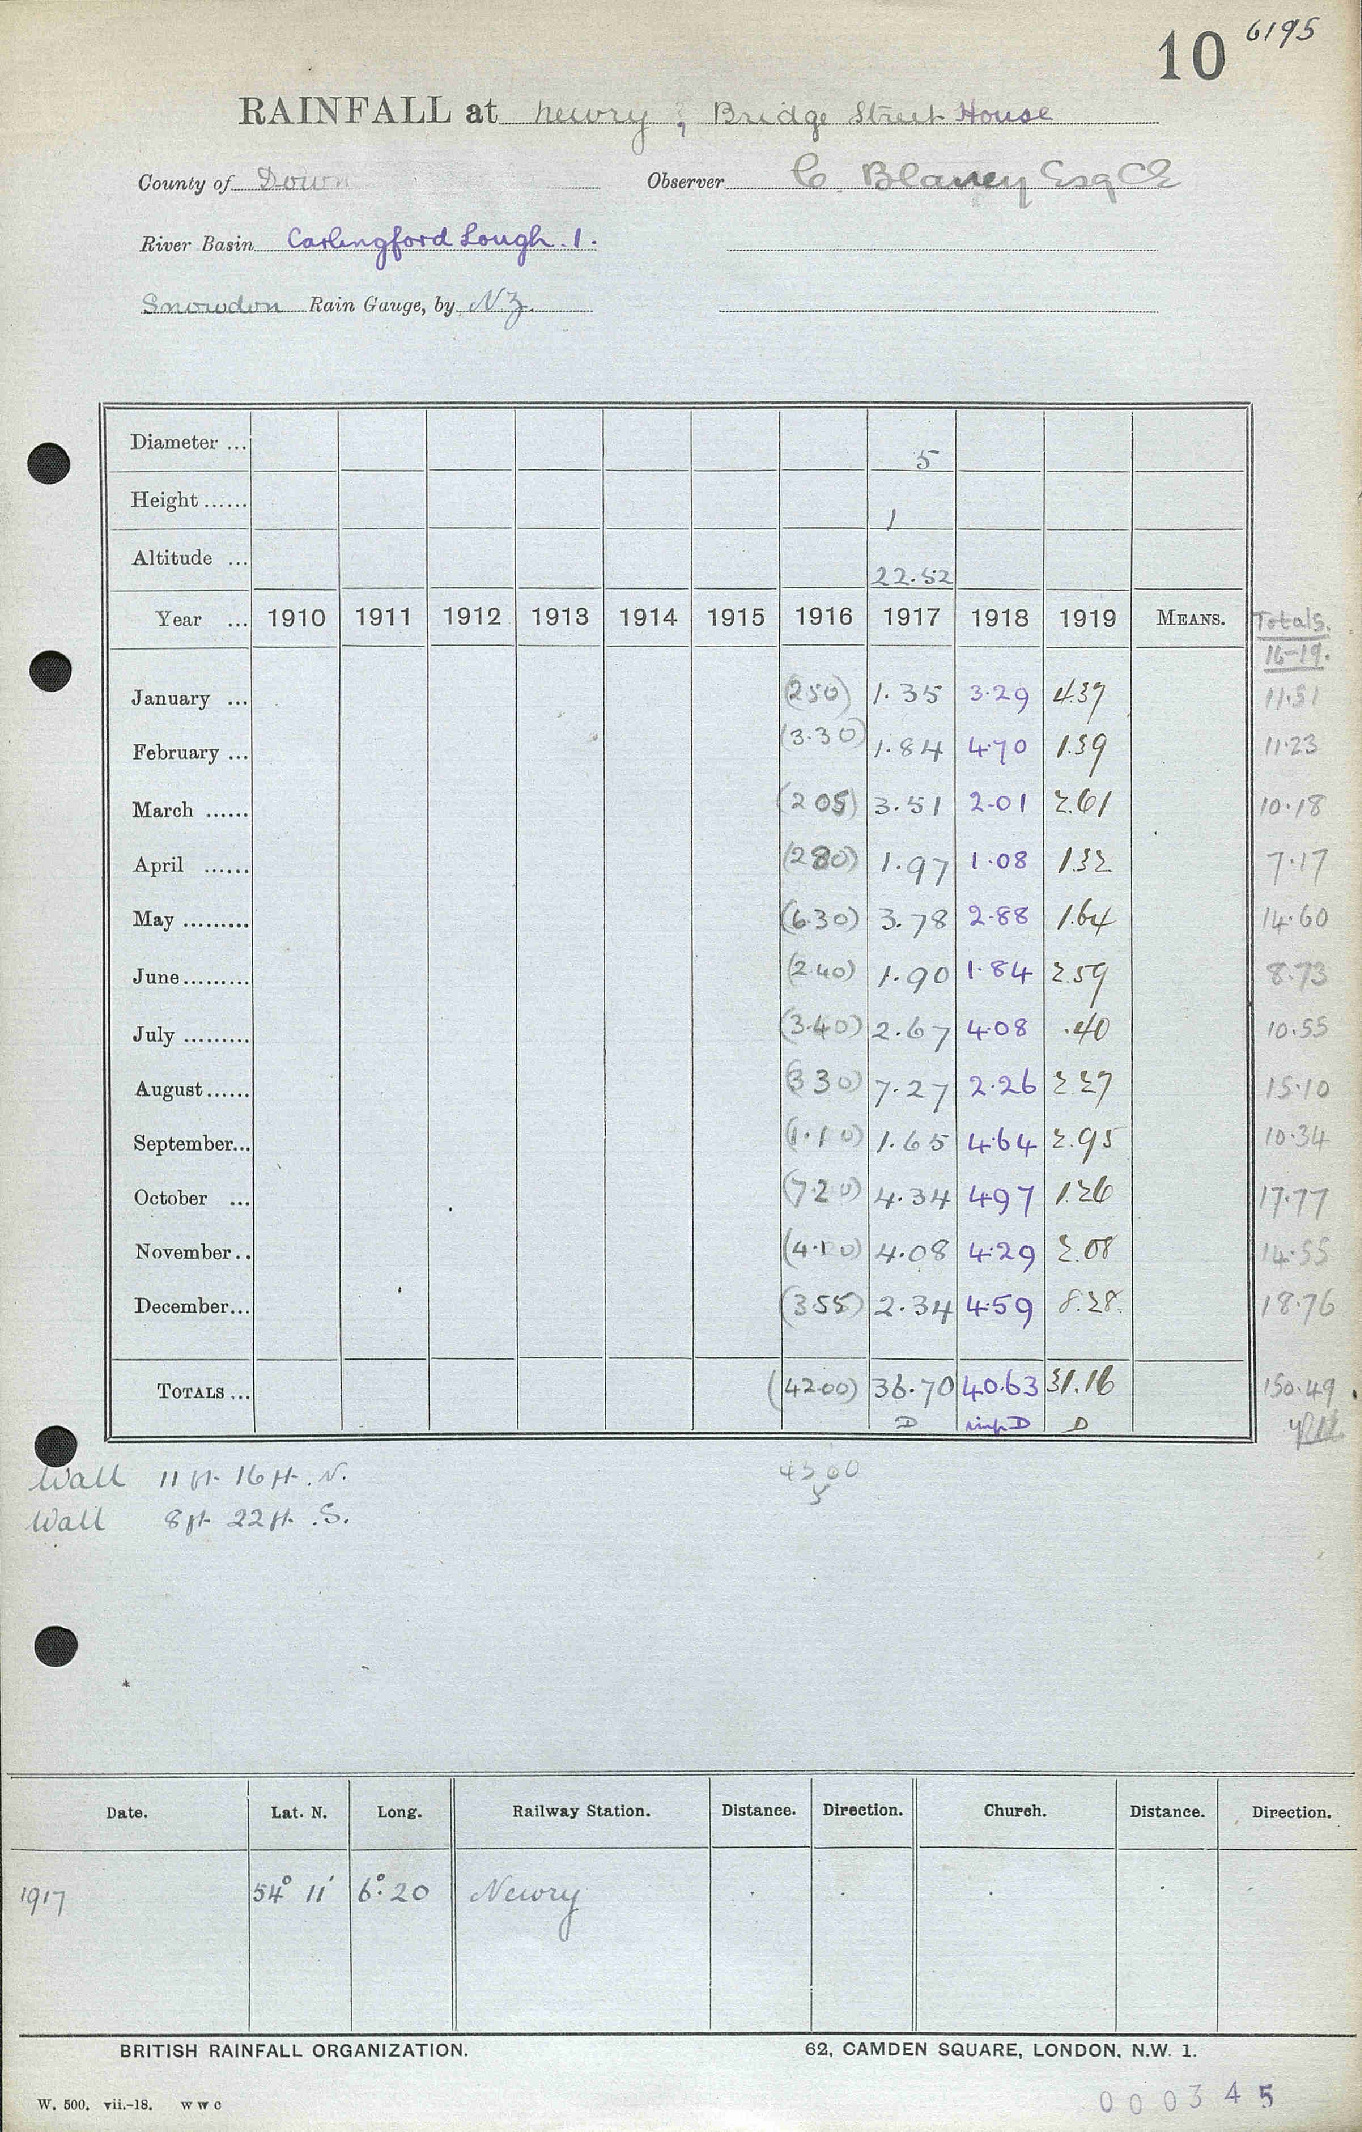 10 6195
RAINFALL at Newry, Bridge Street House
County of Down Observer C. Blaney Esq CE
River Basin Carlingford Lough. 1.
Snowdon Rain Gauge, by N.Z.
Diameter ... 5
Height ...... 1
Altitude ... 22.52
Year ... 1910 1911 1912 1913 1914 1915 1916 1917 1918 1919 MEANS. Totals.
16-19.
January ... (250) 1.35 3.29 4.37 11.51
February ... (3.30) 1.84 4.70 1.39 11.23
March ...... (205) 3.51 2.01 2.61 10.18
April ...... (280) 1.97 1.08 1.32 7.17
May ......... (6.30) 3.78 2.88 1.64 14.60
June ......... (2.40) 1.90 1.84 2.59 8.73
July ......... (3.40) 2.67 4.08 .40 10.55
August ...... (330) 7.27 2.26 2.27 15.10
September... (1.10) 1.65 4.64 2.95 10.34
October ... (7.20) 4.34 4.97 1.26 17.77
November .. (4.10) 4.08 4.29 2.08 14.55
December... (355) 2.34 4.59 8.28 18.76
TOTALS ... (4200) 36.70 40.63 31.16 150.49
D D D
Wall 11 ft. 16 ft. N.
Wall 8 ft. 22 ft. S.
Date. Lat. N. Long. Railway Station. Distance. Direction. Church. Distance. Direction.
1917 54° 11' 6°.20 Newry
BRITISH RAINFALL ORGANIZATION. 62, CAMDEN SQUARE, LONDON, N.W. 1.
W. 500. vii.-18. W W C
000345